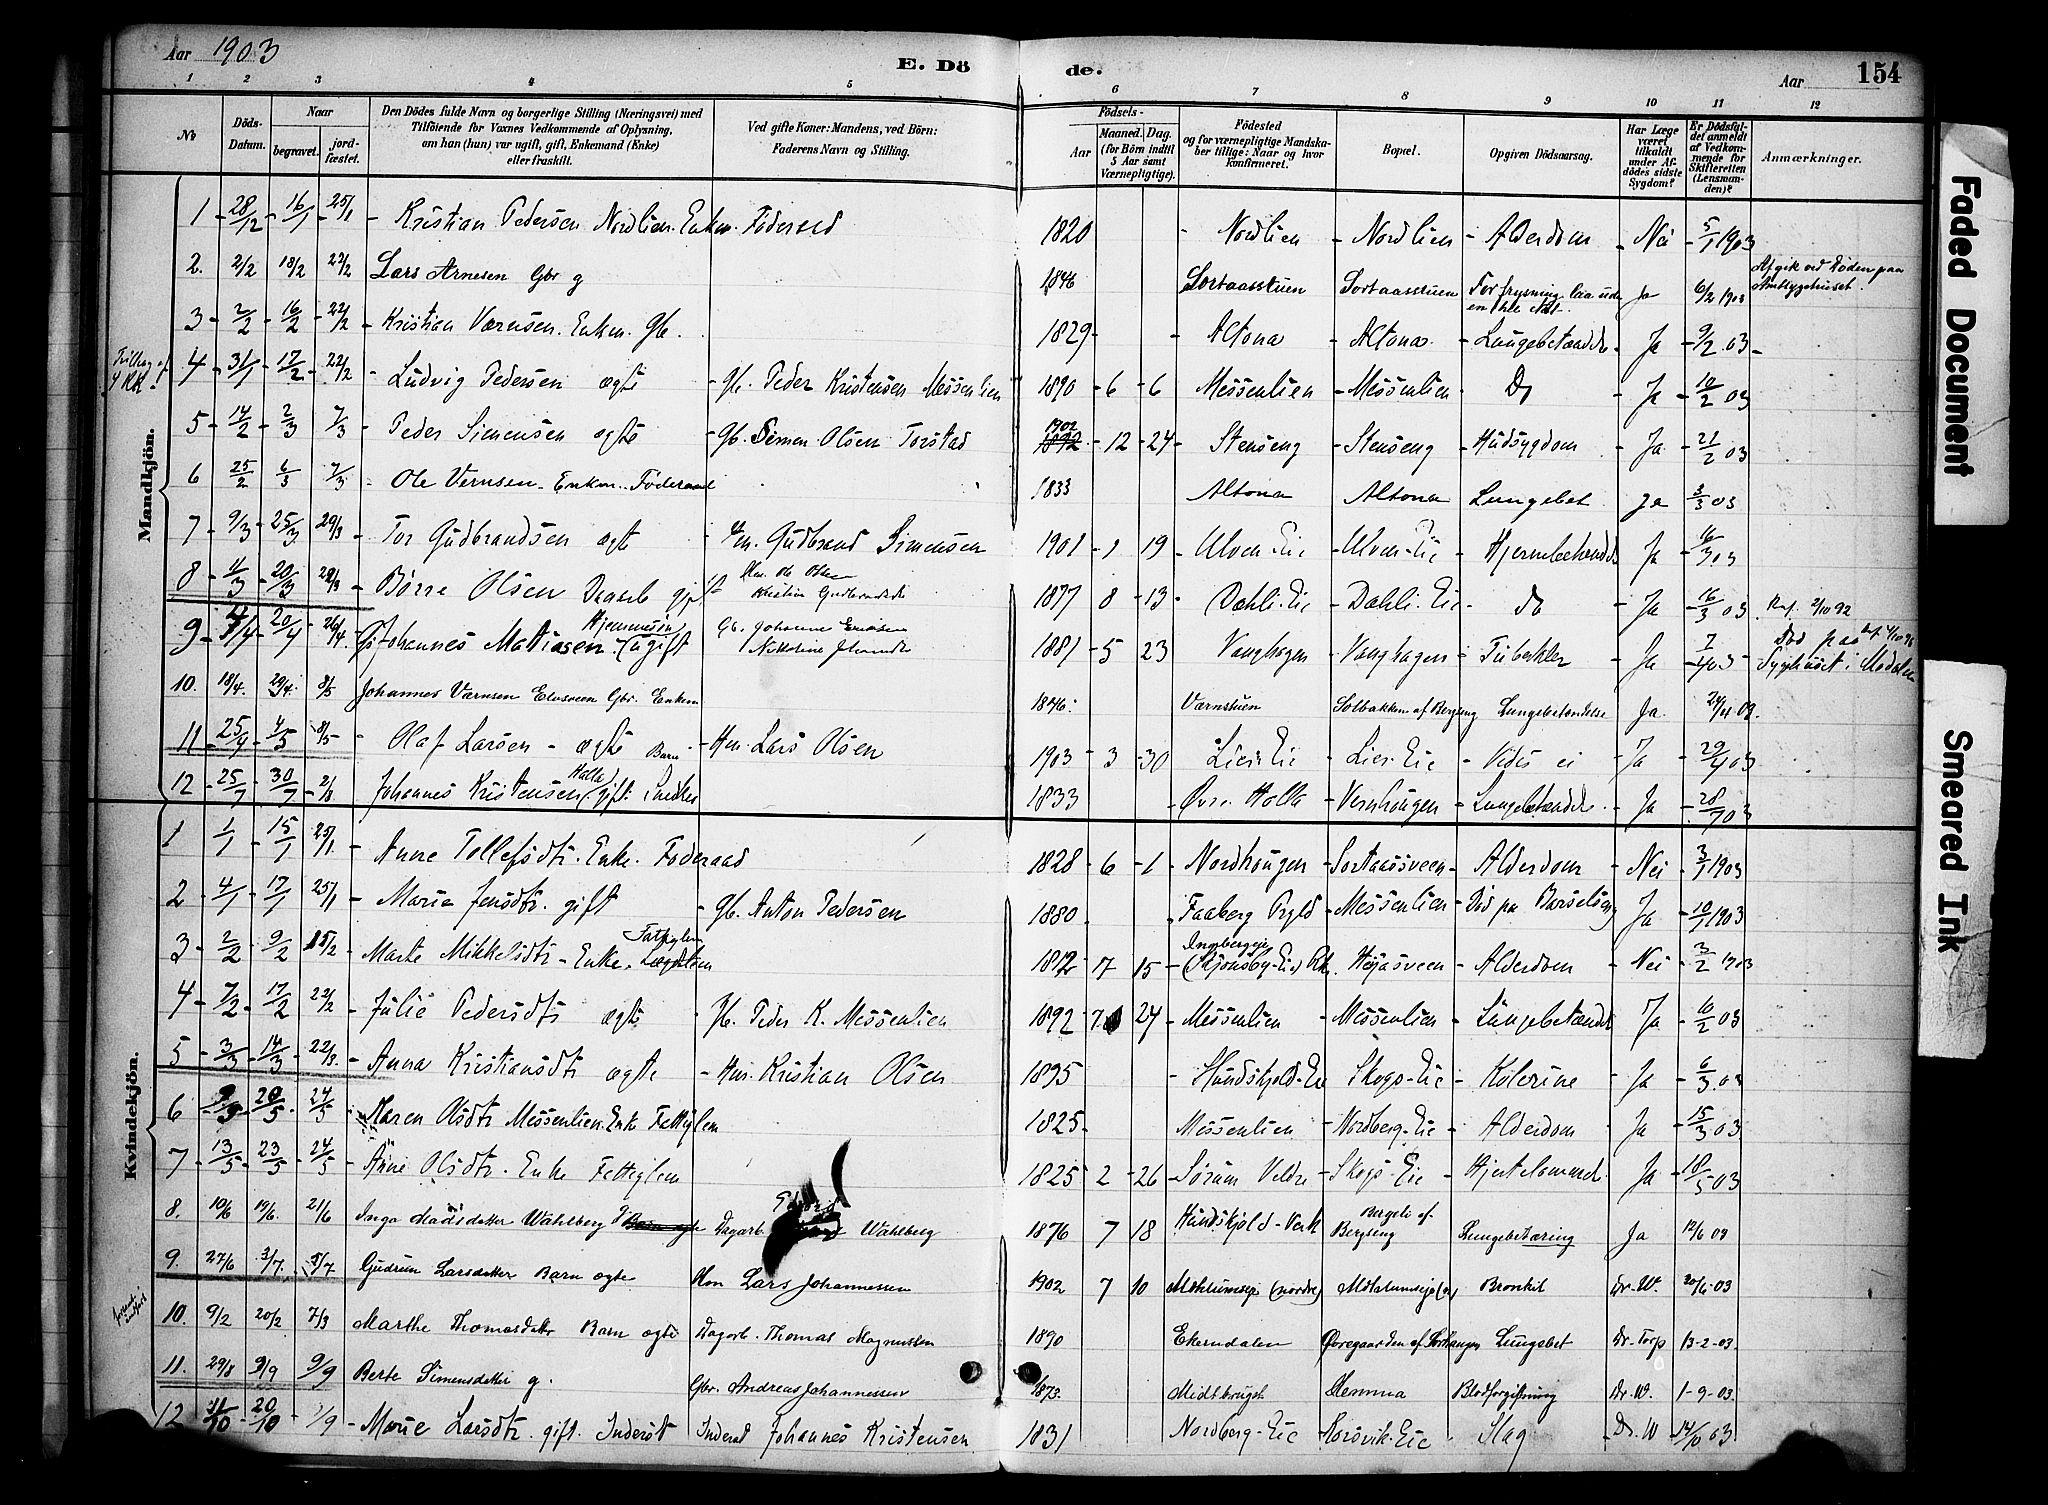 Aar 1903
E. Dö
de.
Aar
154
1 2 3 4 5 6 7 8 9 10 11 12
No
Döds-Datum.
Naar
begravet.
jord-fæstet.
Den Dödes fulde Navn og borgerlige Stilling (Næringsvei) med
Tilföiende for Voxnes Vedkommende af Oplysning,
om han (hun) var ugift, gift, Enkemand (Enke)
eller fraskilt.
Ved gifte Koner: Mandens, ved Börn:
Faderens Navn og Stilling.
Födsels-
Aar
Maaned. Dag.
(for Börn indtil
5 Aar samt
Værnepligtige).
Födested
og for værnepligtige Mandska-
ber tillige: Naar og hvor
konfirmeret.
Bopæl.
Opgiven Dödsaarsag.
Har Læge
været
tilkaldt
under Af-
dödes sidste
Sygdom?
Er Dödsfal-
det anmeldt
af Vedkom-
mende for
Skifteretten
(Lensman-
den)?
Anmærkninger.
Mandkjön.
1 28/12 16/1 25/1 Kristian Pedersen Nordlien. Enkm. Föderaad 1820 Nordlien Nordlien Alderdom Nei 5/1 1903
2. 2/2 18/2 22/2 Lars Arnesen Gbr g 1846 Sortaasstuen Sortaasstuen Forfrysning laa ude en hel Nat. Ja 6/2 1903 Afgik ved Døden paa Amtssygehuset.
3 2/2 16/2 22/2 Kristian Værnsen. Enkm. Gb. 1829 Altona Altona Lungebetændelse Ja 9/2 03
4 31/1 17/2 22/2 Ludvig Pedersen ægte Gb. Peder Kristensen Messenlien 1890 6 6 Messenlien Messenlien Do Ja 10/2 03
5 14/2 2/3 7/3 Peder Simensen ægte Gb. Simen Olsen Torstad 1902 1892 12 24 Stenseng Stenseng Hudsygdom Ja 21/2 03
6 25/2 6/3 7/3 Ole Vernsen. Enkm. Föderaad 1833 Altona Altona Lungebet Ja 3/3 03
7 9/3 25/3 29/3 Tor Gudbrandsen ægte Hm. Gudbrand Simensen 1901 1 19 Ulven Eie Ulven Eie Hjernebetænd. Ja 16/3 03
8 4/3 20/3 29/3 Börre Olsen Dagarb gift Hm. Ole Olsen Kristine Gudbrandsdt 1877 8 13 Dæhli. Eie Dæhli. Eie do Ja 16/3 03 Knf. 2/10 92
9 4/4 20/4 26/4 Johannes Matiasen Hjemmesön (ugift Gb. 1881 5 23 Vanghagen Vanghagen Tuberkler Ja 7/4 03 Död paa Sygehuset i Modalen
10. 18/4. 29/4. 8/5 Johannes Værnsen Gbr. Enkem 1846. Værnstuen Solbakken af Bergseng Lungebetændelse Ja 24/4 03.
11 25/4 4/5 8/5 Olaf Larsen ægte Barn Hm. Lars Olsen 1903 3 30 Lier. Eie Lier. Eie Vides ei Ja 29/4 03
12 25/7 30/7 2/8 Johannes Kristensen Holla gift. Snedker 1833 Övre Holla Vernhougen Lungebetændelse Ja 28/7 03
Kvindekjön.
1 1/1 15/1 25/1 Anne Tollefsdtr. Enke. Föderaad 1828 6 1 Nordhougen Sortaassveen Alderdom Nei 3/1 1903
2 4/1 17/1 25/1 Marie Jensdtr. gift Gb. Anton Pedersen 1880 Faaberg Messenlien Död paa Barselseng Ja 10/1 1903
3 2/2 9/2 15/2 Marte Mikkelsdtr Enke. Fattiglem 1812 7 15 Ingebergeie (Skjönsby. Eie) Heiasveen Alderdom Nei 3/2 1903
4 7/2 17/2 22/2 Julie Pedersdtr ægte Gb. Peder K. Messenlien 1892 7 24 Messenlien Messenlien Lungebetænd. Ja 10/2 03
5 3/3 14/3 22/3. Anna Kristiansdtr ægte Hm. Kristian Olsen 1895 Hundskjold-Eie Skogs-Eie Kolerine Ja 6/3 03
6 20/5 24/5 Karen Olsdtr Messenlien. Enke Fattiglem 1825. Messenlien Nordberg. Eie Alderdom Ja 15/3 03
7 13/5 23/5 24/5 Anne Olsdtr. Enke Fattiglem 1825 2 26 Sörum Veldre Skogs-Eie Ja 18/5 03
8. 10/6 19/6. 21/6 Inga Madsdatter Wahlberg Dagarb. Wahlberg 1876 7 18 Hundskjold-Verk Bergseng Lungebetæring Ja 12/6 03
9. 27/6 3/7. 5/7 Gudrun Larsdatter Barn ægte Hm Lars Johannessen 1902 7 10 Mæhlumseie (nordre) Mæhlumseie Bronkit Dr. W. 20/6-03
10. 9/2 20/2 7/3 Marthe Thomasdatter Barn ægte Dagarb. Thomas Magnussen 1890 Ekerndalen Övregaarden af Lungebet Dr. Torp 13-2-03.
11. 29/8 9/9 9/9 Berte Simensdatter g. Gbr. Andreas Johannessen 1873. Midtbruget Blodforgiftning Dr. W. 1-9-03.
12 11/10 20/10 /9 Marie Larsdtr. gift. Inderst Inderst Johannes Kristensen 1831 Nordberg-Eie Korsvik. Eie Slag Dr. W 14/10 03
Faded Document
Smeared Ink